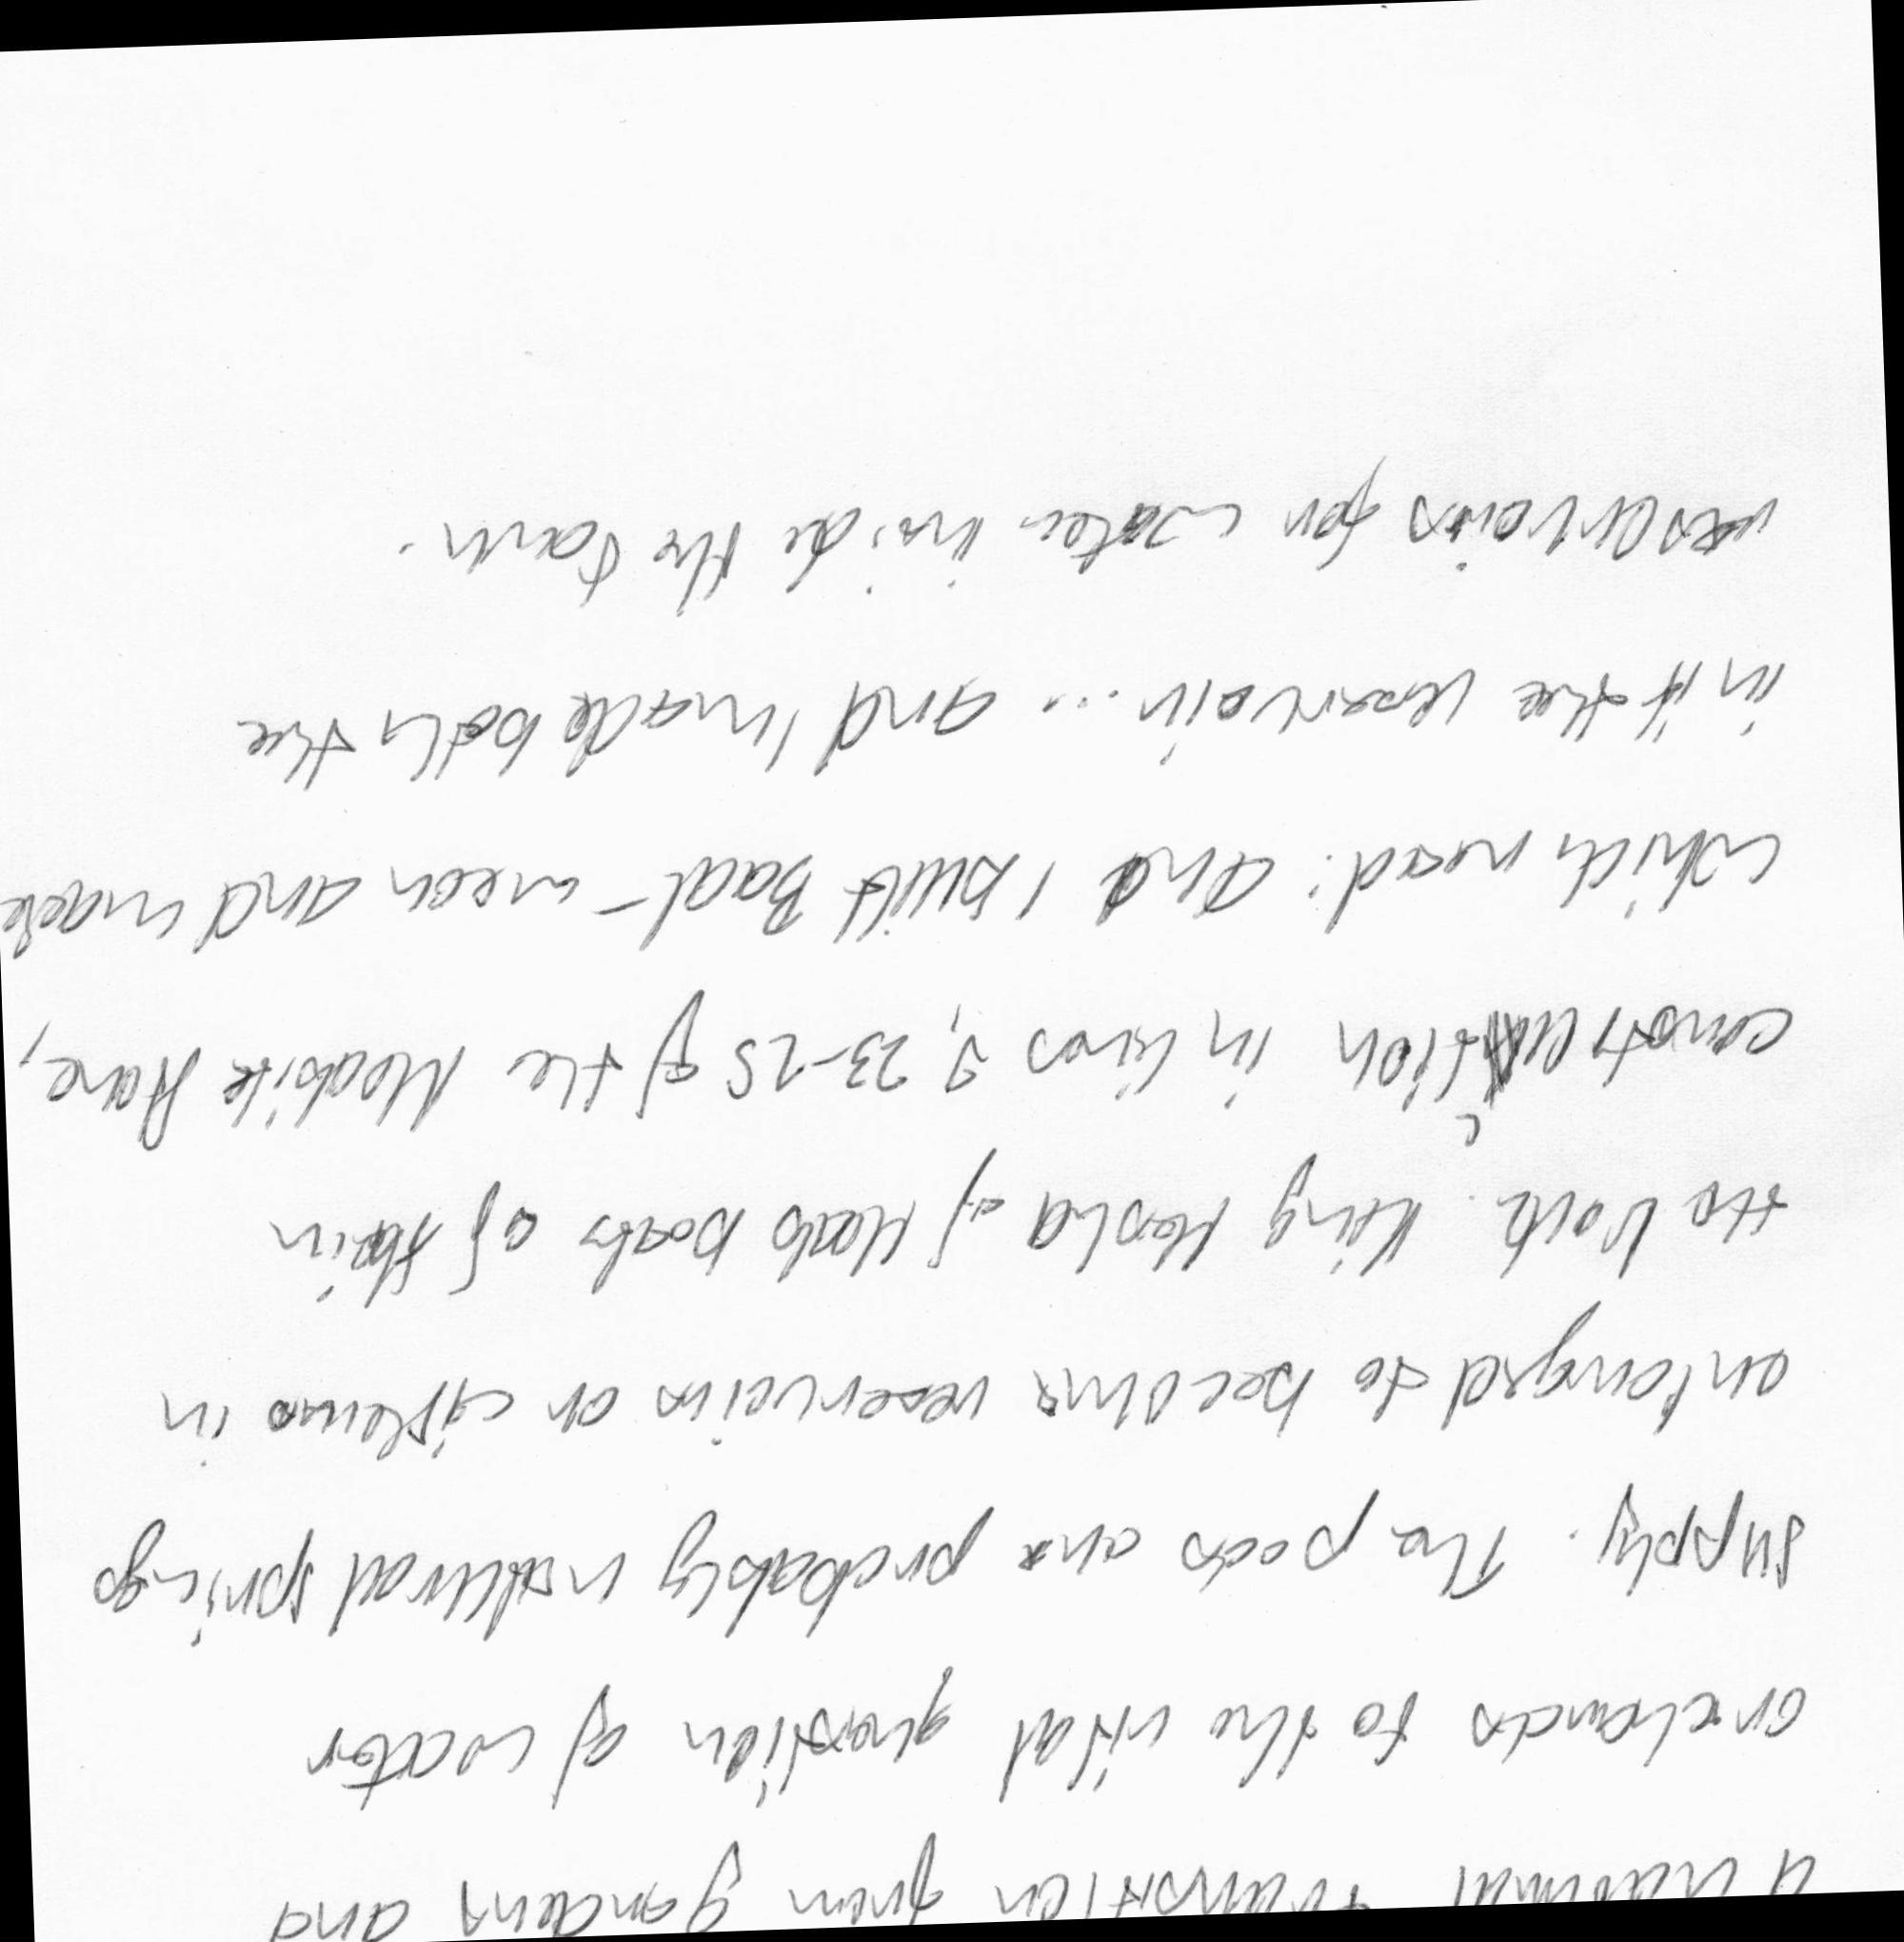 a natural transition from gardens and
orchards to the vital question of water
supply. The pools are probably natural springs
enlarged to become reservoirs or cisterns in
the rock. King Mesha of Moab boats of their
construction in lines 9, 23-25 of the Moabite Stone,
which read: and I built Baal-meon and made
in it the reservoir... and I made both the
reservoirs for water inside the town.